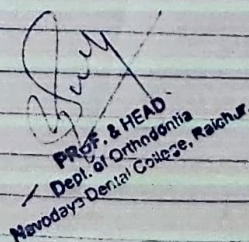 PROF. & HEAD
Dept. of Orthodontia
Navodaya Dental College, Raichur.